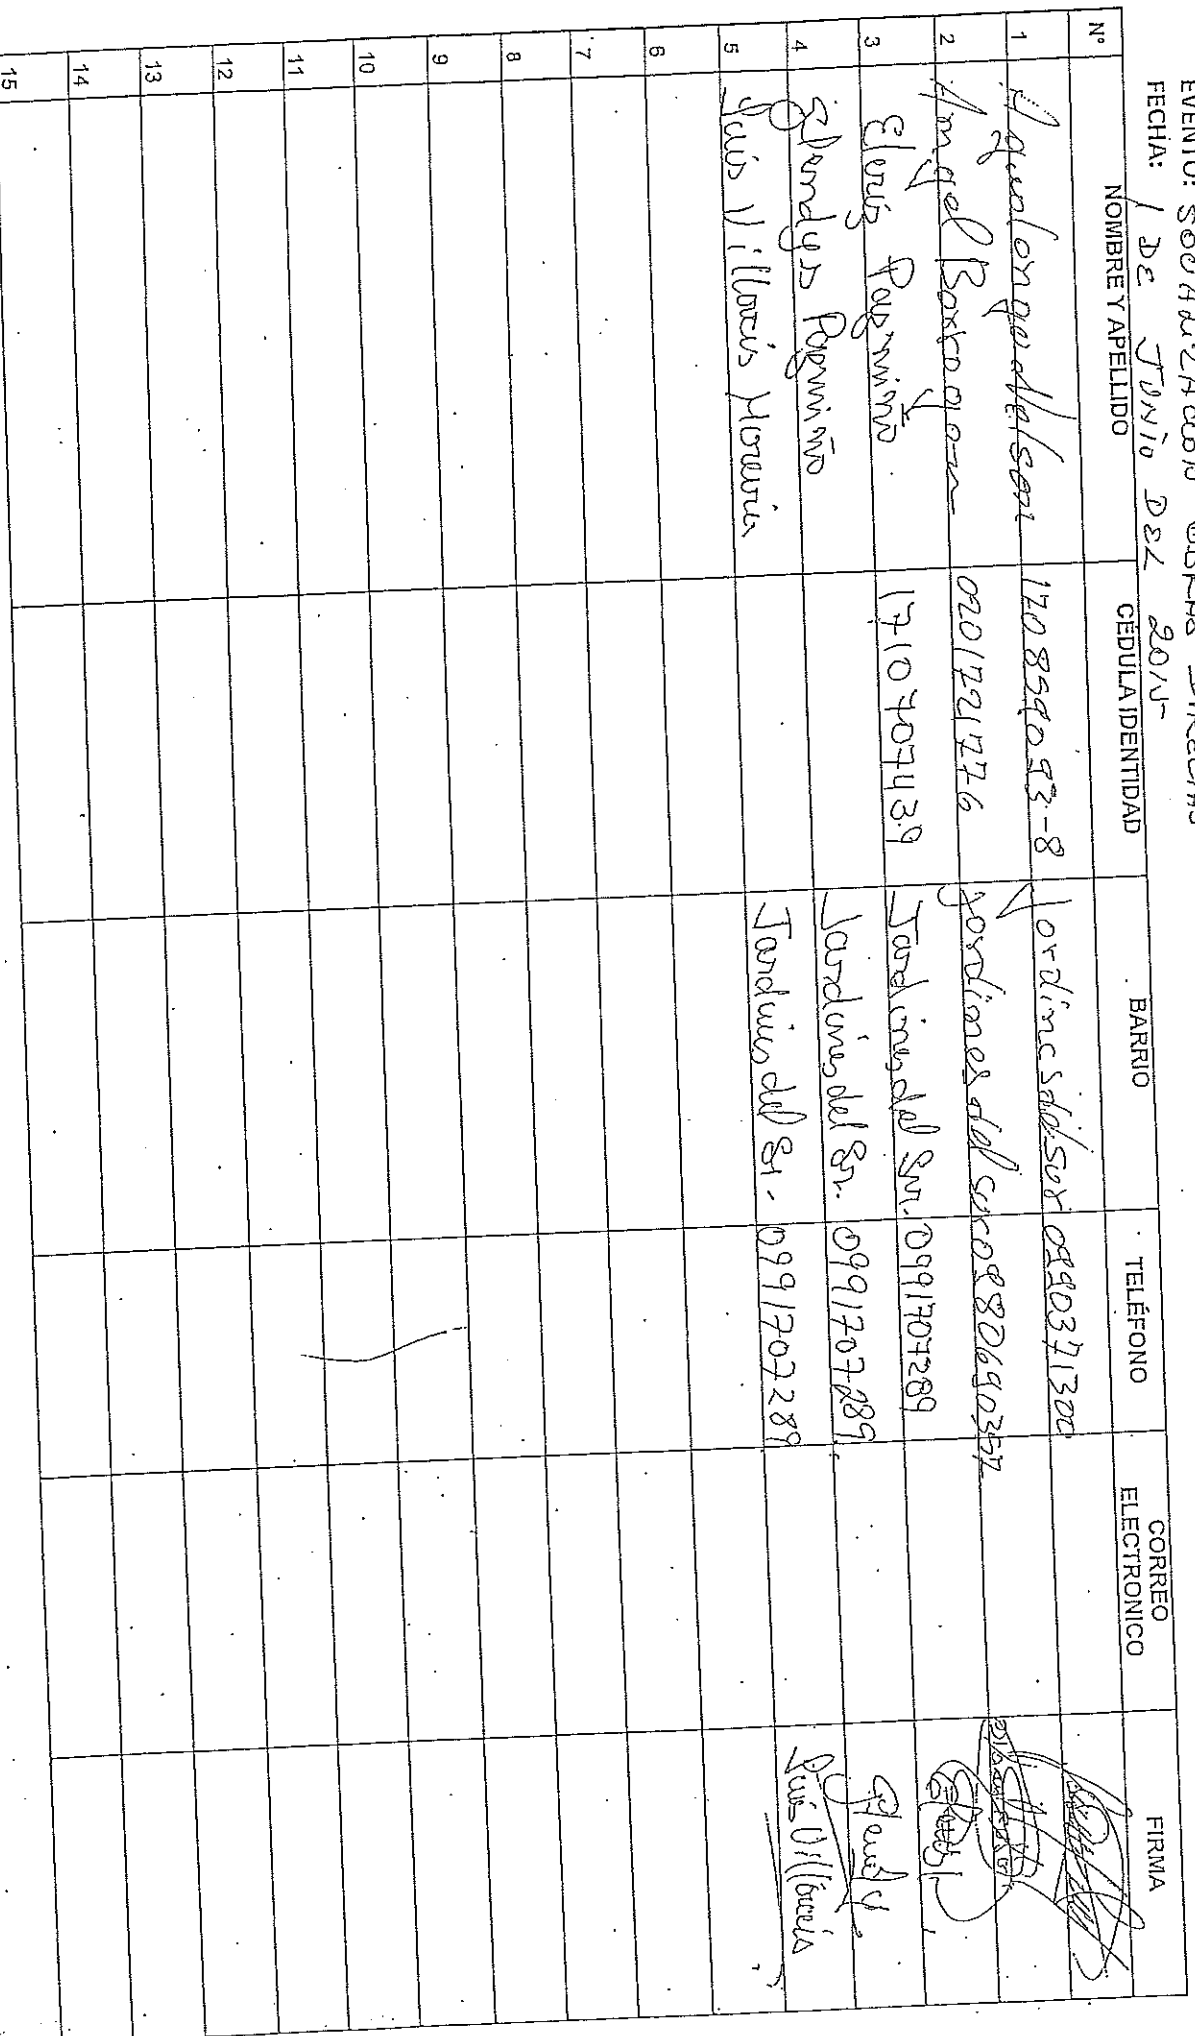 EVENTO: SOCIALIZACION OBRAS DIRECTAS
FECHA: 1 DE JUNIO DEL 2015
N° NOMBRE Y APELLIDO CÉDULA IDENTIDAD BARRIO TELÉFONO CORREO ELECTRONICO FIRMA
1 170859093-8 Jardines del sur 0990371300
2 Angel Borragan 0201721776 Jardines del sur 0980690357
3 Eleris Pazmiño 171070743.9 Jardines del Sur. 0991707289
4 Glendys Pazmiño Jardines del Sur. 0991707289 Glendy
5 Luis Villacis Moreira Jardines del Sr. 0991707289 Luis Villacis
6
7
8
9
10
11
12
13
14
15